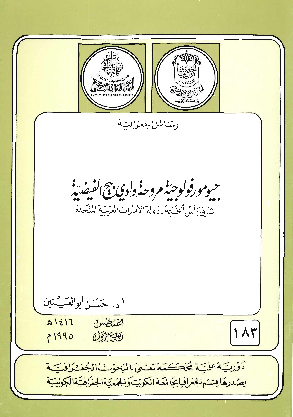 رسائل جغرافية
جيومورفولوجية مروحة وادي بيح الفيضية
رأس الخيمة - دولة الامارات العربية المتحدة
أ.د. حسن أبو العينين
١٤١٦ هـ
١٩٩٥ م
١٨٣
دورية علمية محكمة تعنى بالبحوث الجغرافية
يصدرها قسم جغرافيا جامعة الكويت والجمعية الجغرافية الكويتية